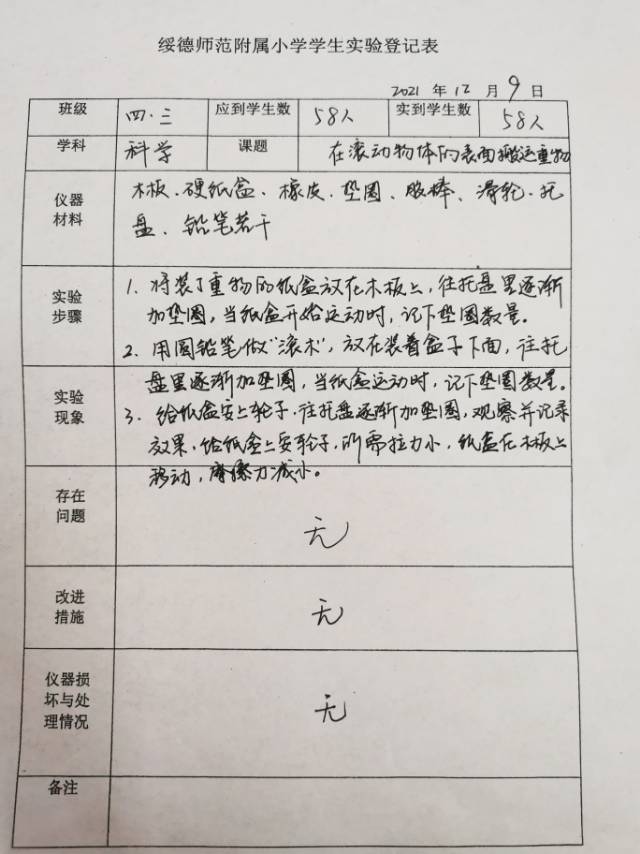 绥德师范附属小学学生实验登记表
2021 年 12 月 9 日
班级 四·三 应到学生数 58人 实到学生数 58人
学科 科学 课题 在滚动物体的表面搬运重物
仪器材料 木板、硬纸盒、橡皮、垫圈、胶棒、滑轮、托
盘、铅笔若干
实验步骤 1. 将装了重物的纸盒放在木板上，往托盘里逐渐
加垫圈，当纸盒开始运动时，记下垫圈数量。
2. 用圆铅笔做“滚木”，放在装着盒子下面，往托
实验现象 盘里逐渐加垫圈，当纸盒运动时，记下垫圈数量。
3. 给纸盒安上轮子，往托盘逐渐加垫圈，观察并记录
效果，给纸盒上安轮子，所需拉力小，纸盒在木板上
移动，摩擦力减小。
存在问题 无
改进措施 无
仪器损坏与处理情况 无
备注